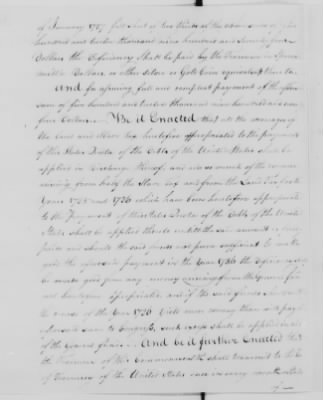 of January 1787 fall short of two thirds of the above sum of five
hundred and twelve thousand nine hundred and seventy four
Dollars the deficiency shall be paid by the Treasurer in Spanish
milled Dollars or other silver or Gold Coin equivalent thereto.
And for securing full and compleat payment of the afore
sum of five hundred and twelve thousand nine hundred and seventy
four Dollars Be it Enacted that all the arrearages of
the Land and Slave Tax heretofore appropriated to the payment
of this States Quota of the Debts of the United States shall be
applied in discharge thereof, and so much of the revenue
arising from the Slave Tax and from the Land Tax for the
Years 1785 and 1786 which have been heretofore appropriated
to the Payment of this States Quota of the Debts of the United
States shall be applied thereto until the said amount is
paid and should the said funds not prove sufficient to make
good the aforesaid payment in the Year 1786 the deficiency
be made good from any money arising from the
not heretofore appropriated and if the said funds
the course of the Year 1786 yield more money than will pay
sum to Congress, such excess shall be applied in aid
of the General fund. And be it further Enacted that
the Treasurer of this Commonwealth shall transmit to the
of Treasury of the United States once in every month